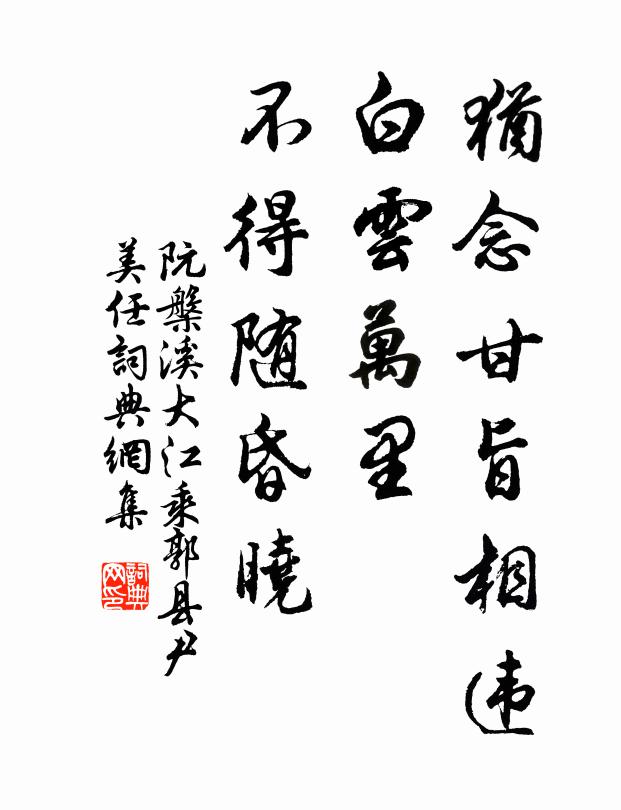 猶念甘旨相违
白雲萬里
不得随昏曉
阮槃溪大江乘郭县尹
美任詞典網集
詞典网印